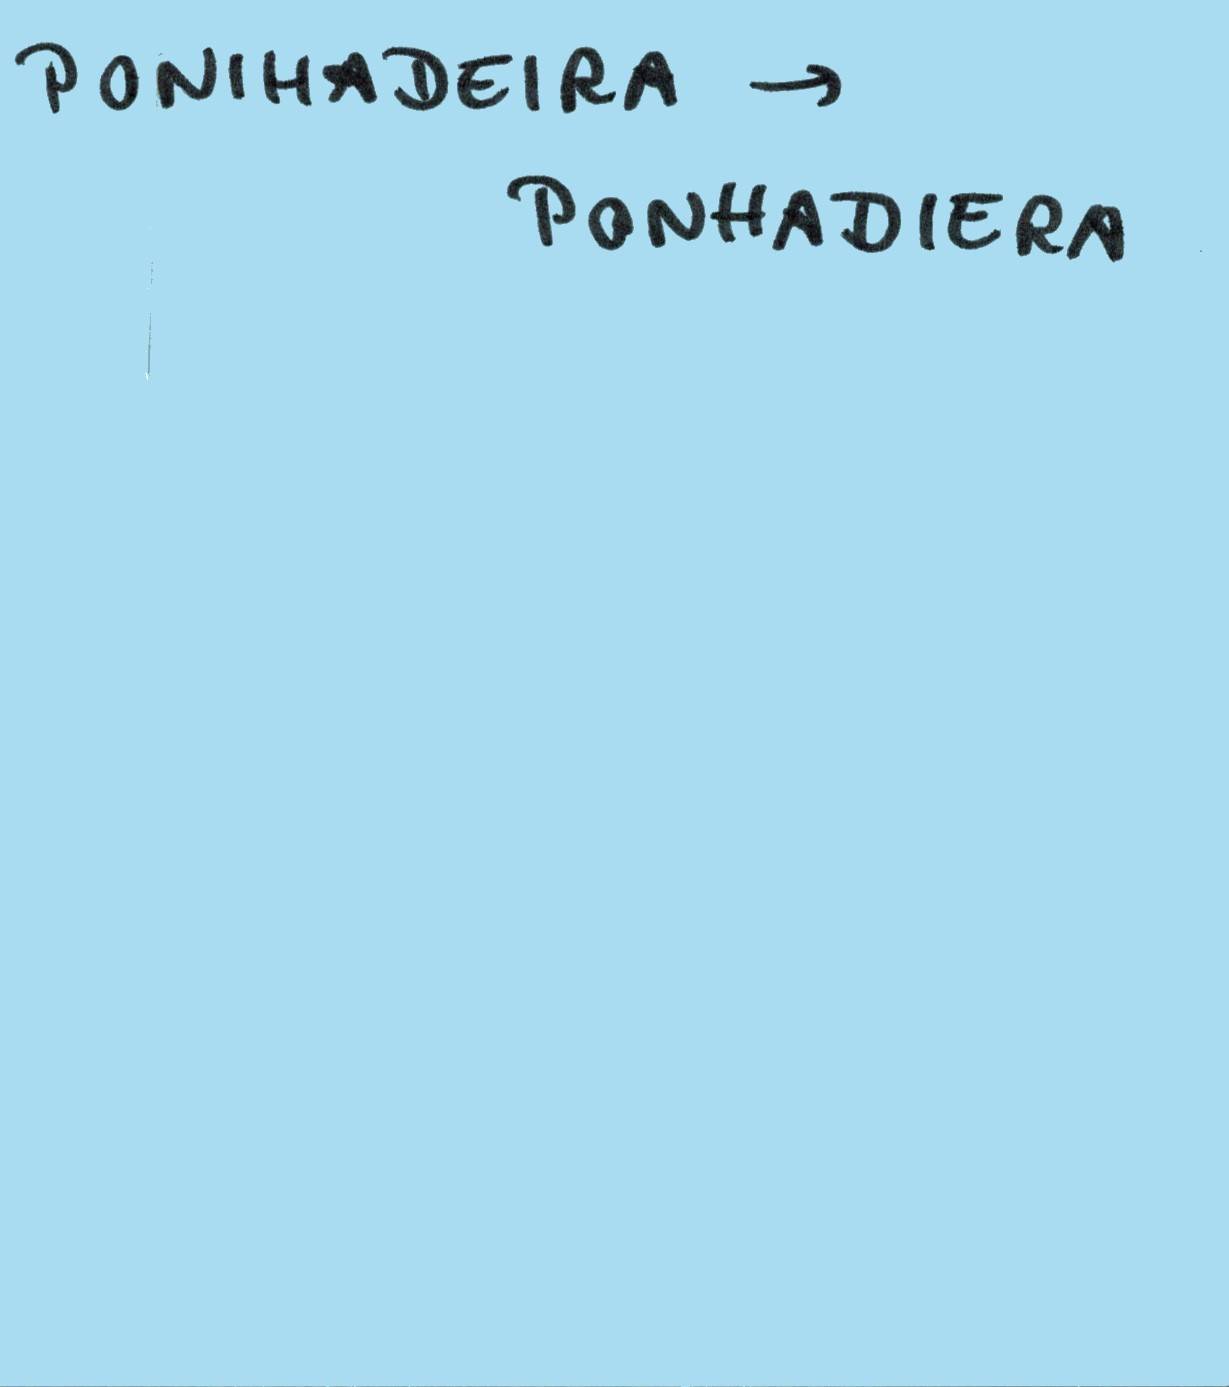 PONIHADEIRA →
PONHADIERA